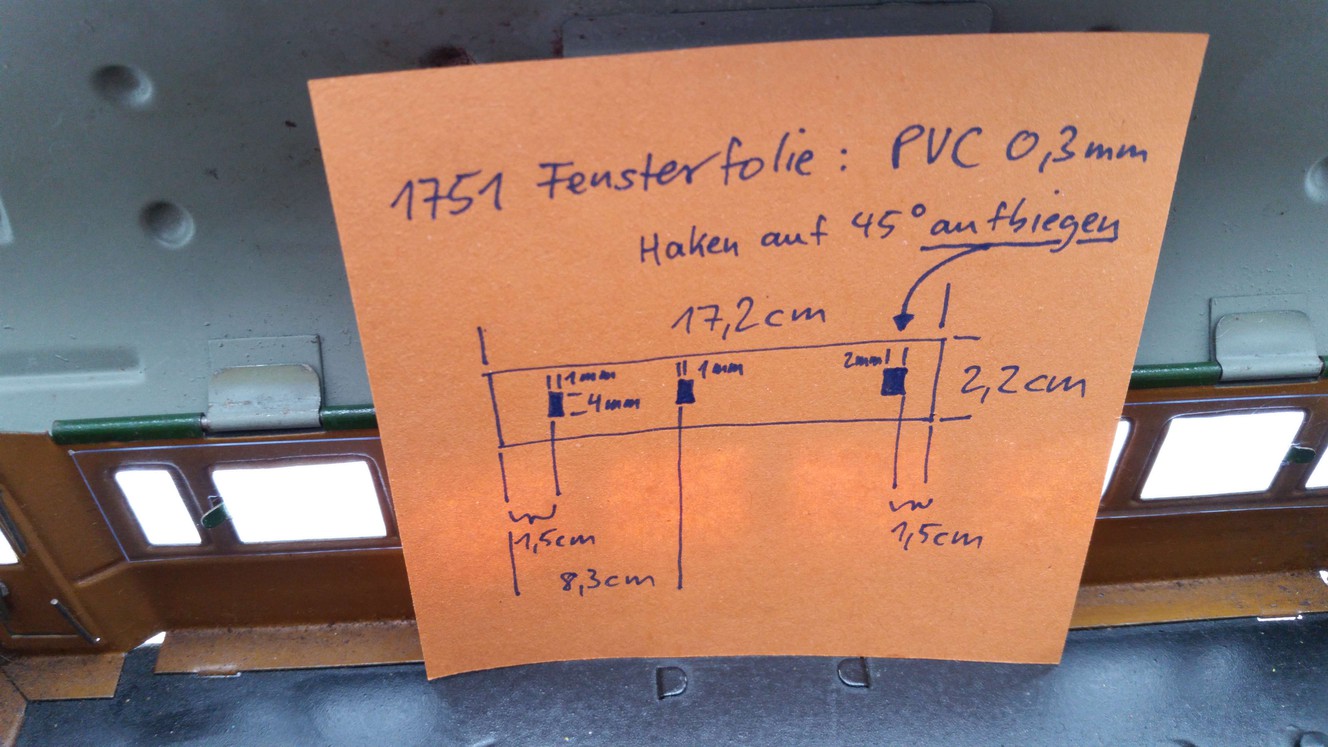 1751 Fensterfolie: PVC 0,3mm
Haken auf 45° aufbiegen
17,2cm
1mm 1mm 2mm
4mm 2,2cm
1,5cm 1,5cm
8,3cm